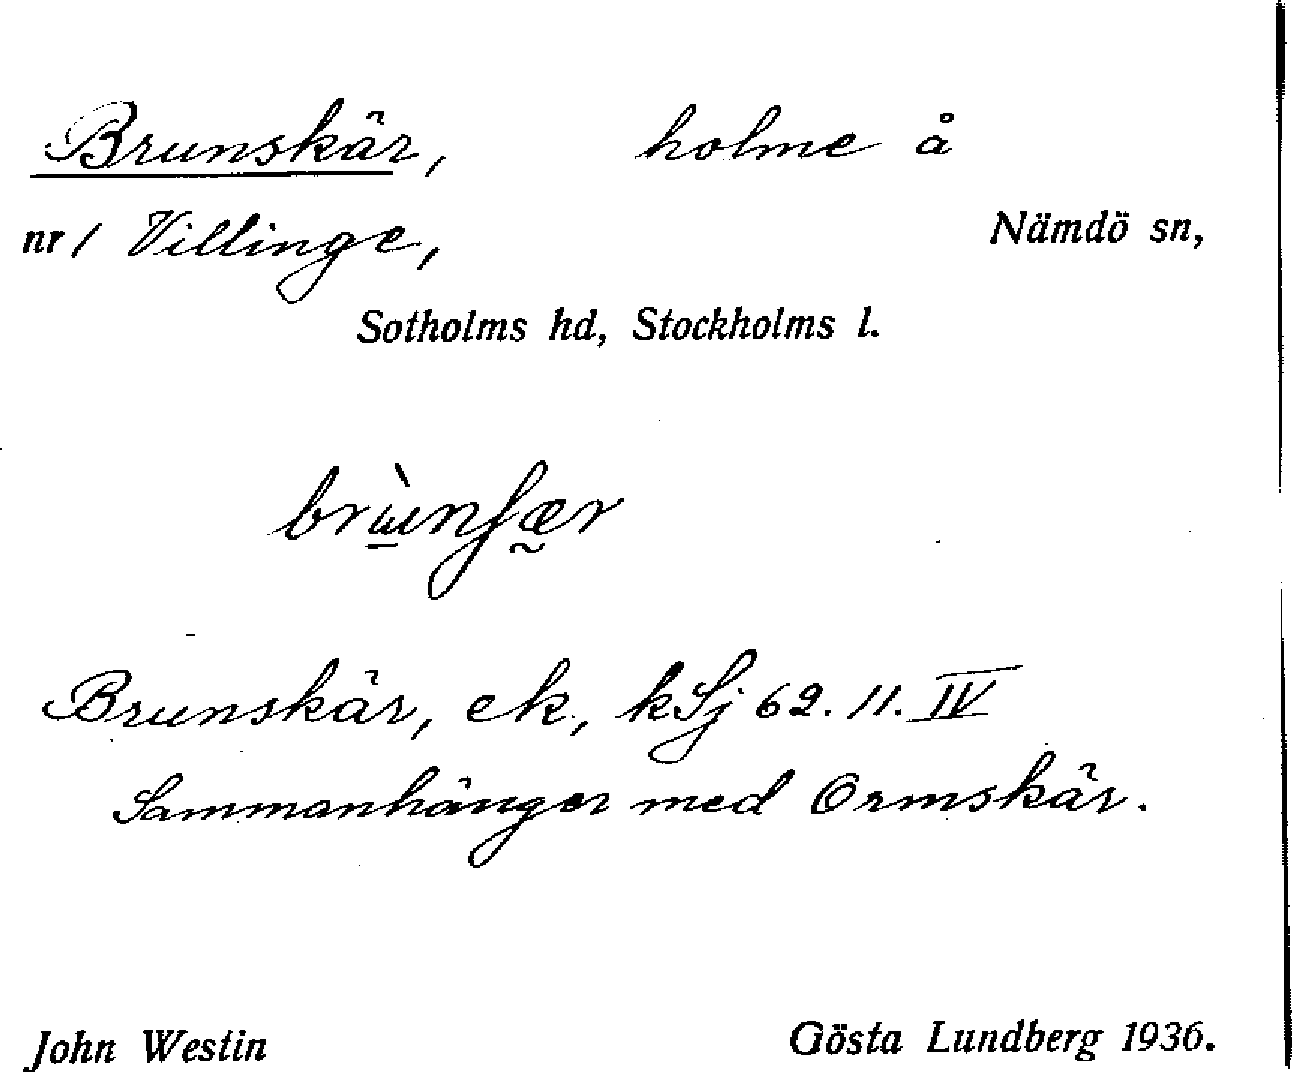 Brunskär, holme å
nr 1 Villinge, Nämdö sn,
Sotholms hd, Stockholms l.
brùnʃær
Brunskär, ek, kSj 62. 11. IV
Sammanhänger med Ormskär.
John Westin Gösta Lundberg 1936.